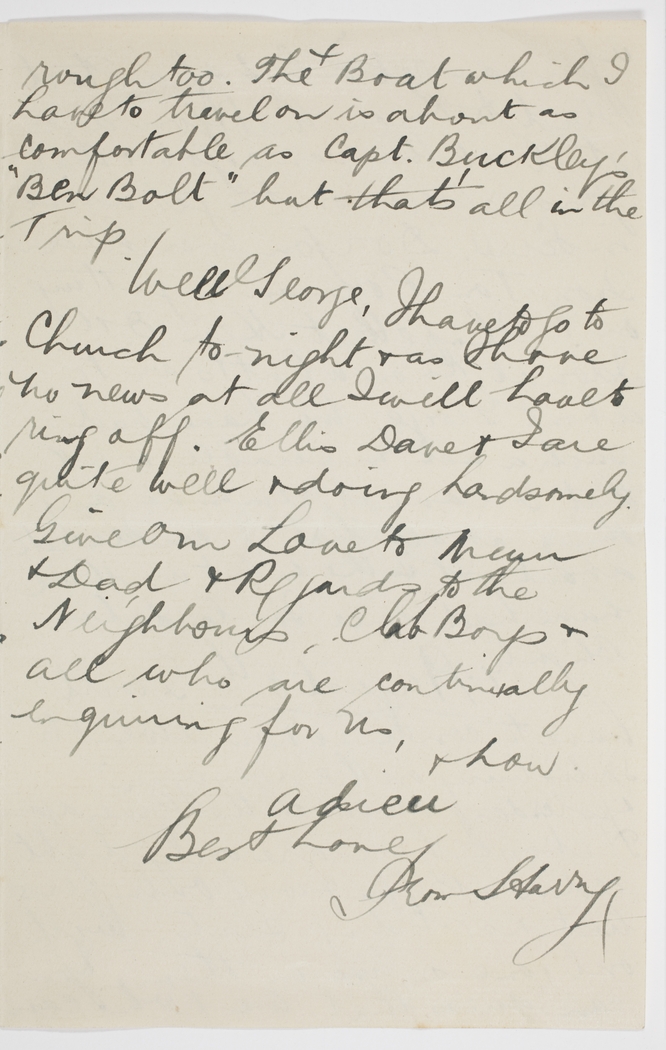 rough too. The Boat which I
have to travel on is about as
comfortable as Capt. Buckley's
"Ben Bolt" but that's all in the
Trip.
Well George, I have to go to
Church to-night & as I have
no news at all I will have to
ring off. Ellis Dave & I are
quite well & doing handsomely.
Give Our Love to Mum
& Dad & Regards to the
Neighbours, Club Boys &
all who are continually
enquiring for us,
& how
adieu
Best Love
From Harry